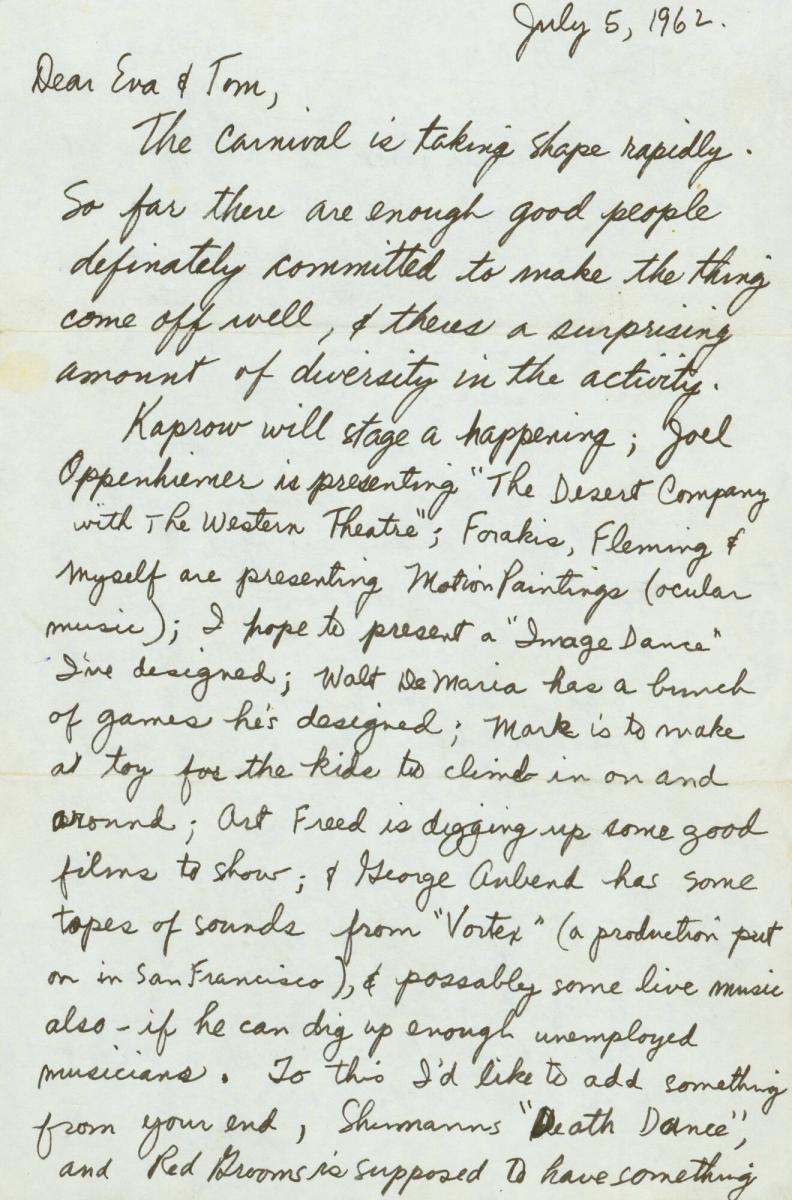 July 5, 1962.
Dear Eva & Tom,
The Carnival is taking shape rapidly.
So far there are enough good people
definately committed to make the thing
come off well, & theres a surprising
amount of diversity in the activity.
Kaprow will stage a happening; Joel
Oppenhiemer is presenting "The Desert Company
with The Western Theatre"; Forakis, Fleming &
myself are presenting Motion Paintings (ocular
music); I hope to present a "Image Dance"
I've designed; Walt DeMaria has a bunch
of games he's designed; Mark is to make
a toy for the kids to climb in on and
around; Art Freed is digging up some good
films to show; & George Aubend has some
tapes of sounds from "Vortex" (a production put
on in San Francisco), & possably some live music
also - if he can dig up enough unemployed
musicians. To this I'd like to add something
from your end, Shumanns "Death Dance",
and Red Grooms is supposed to have something